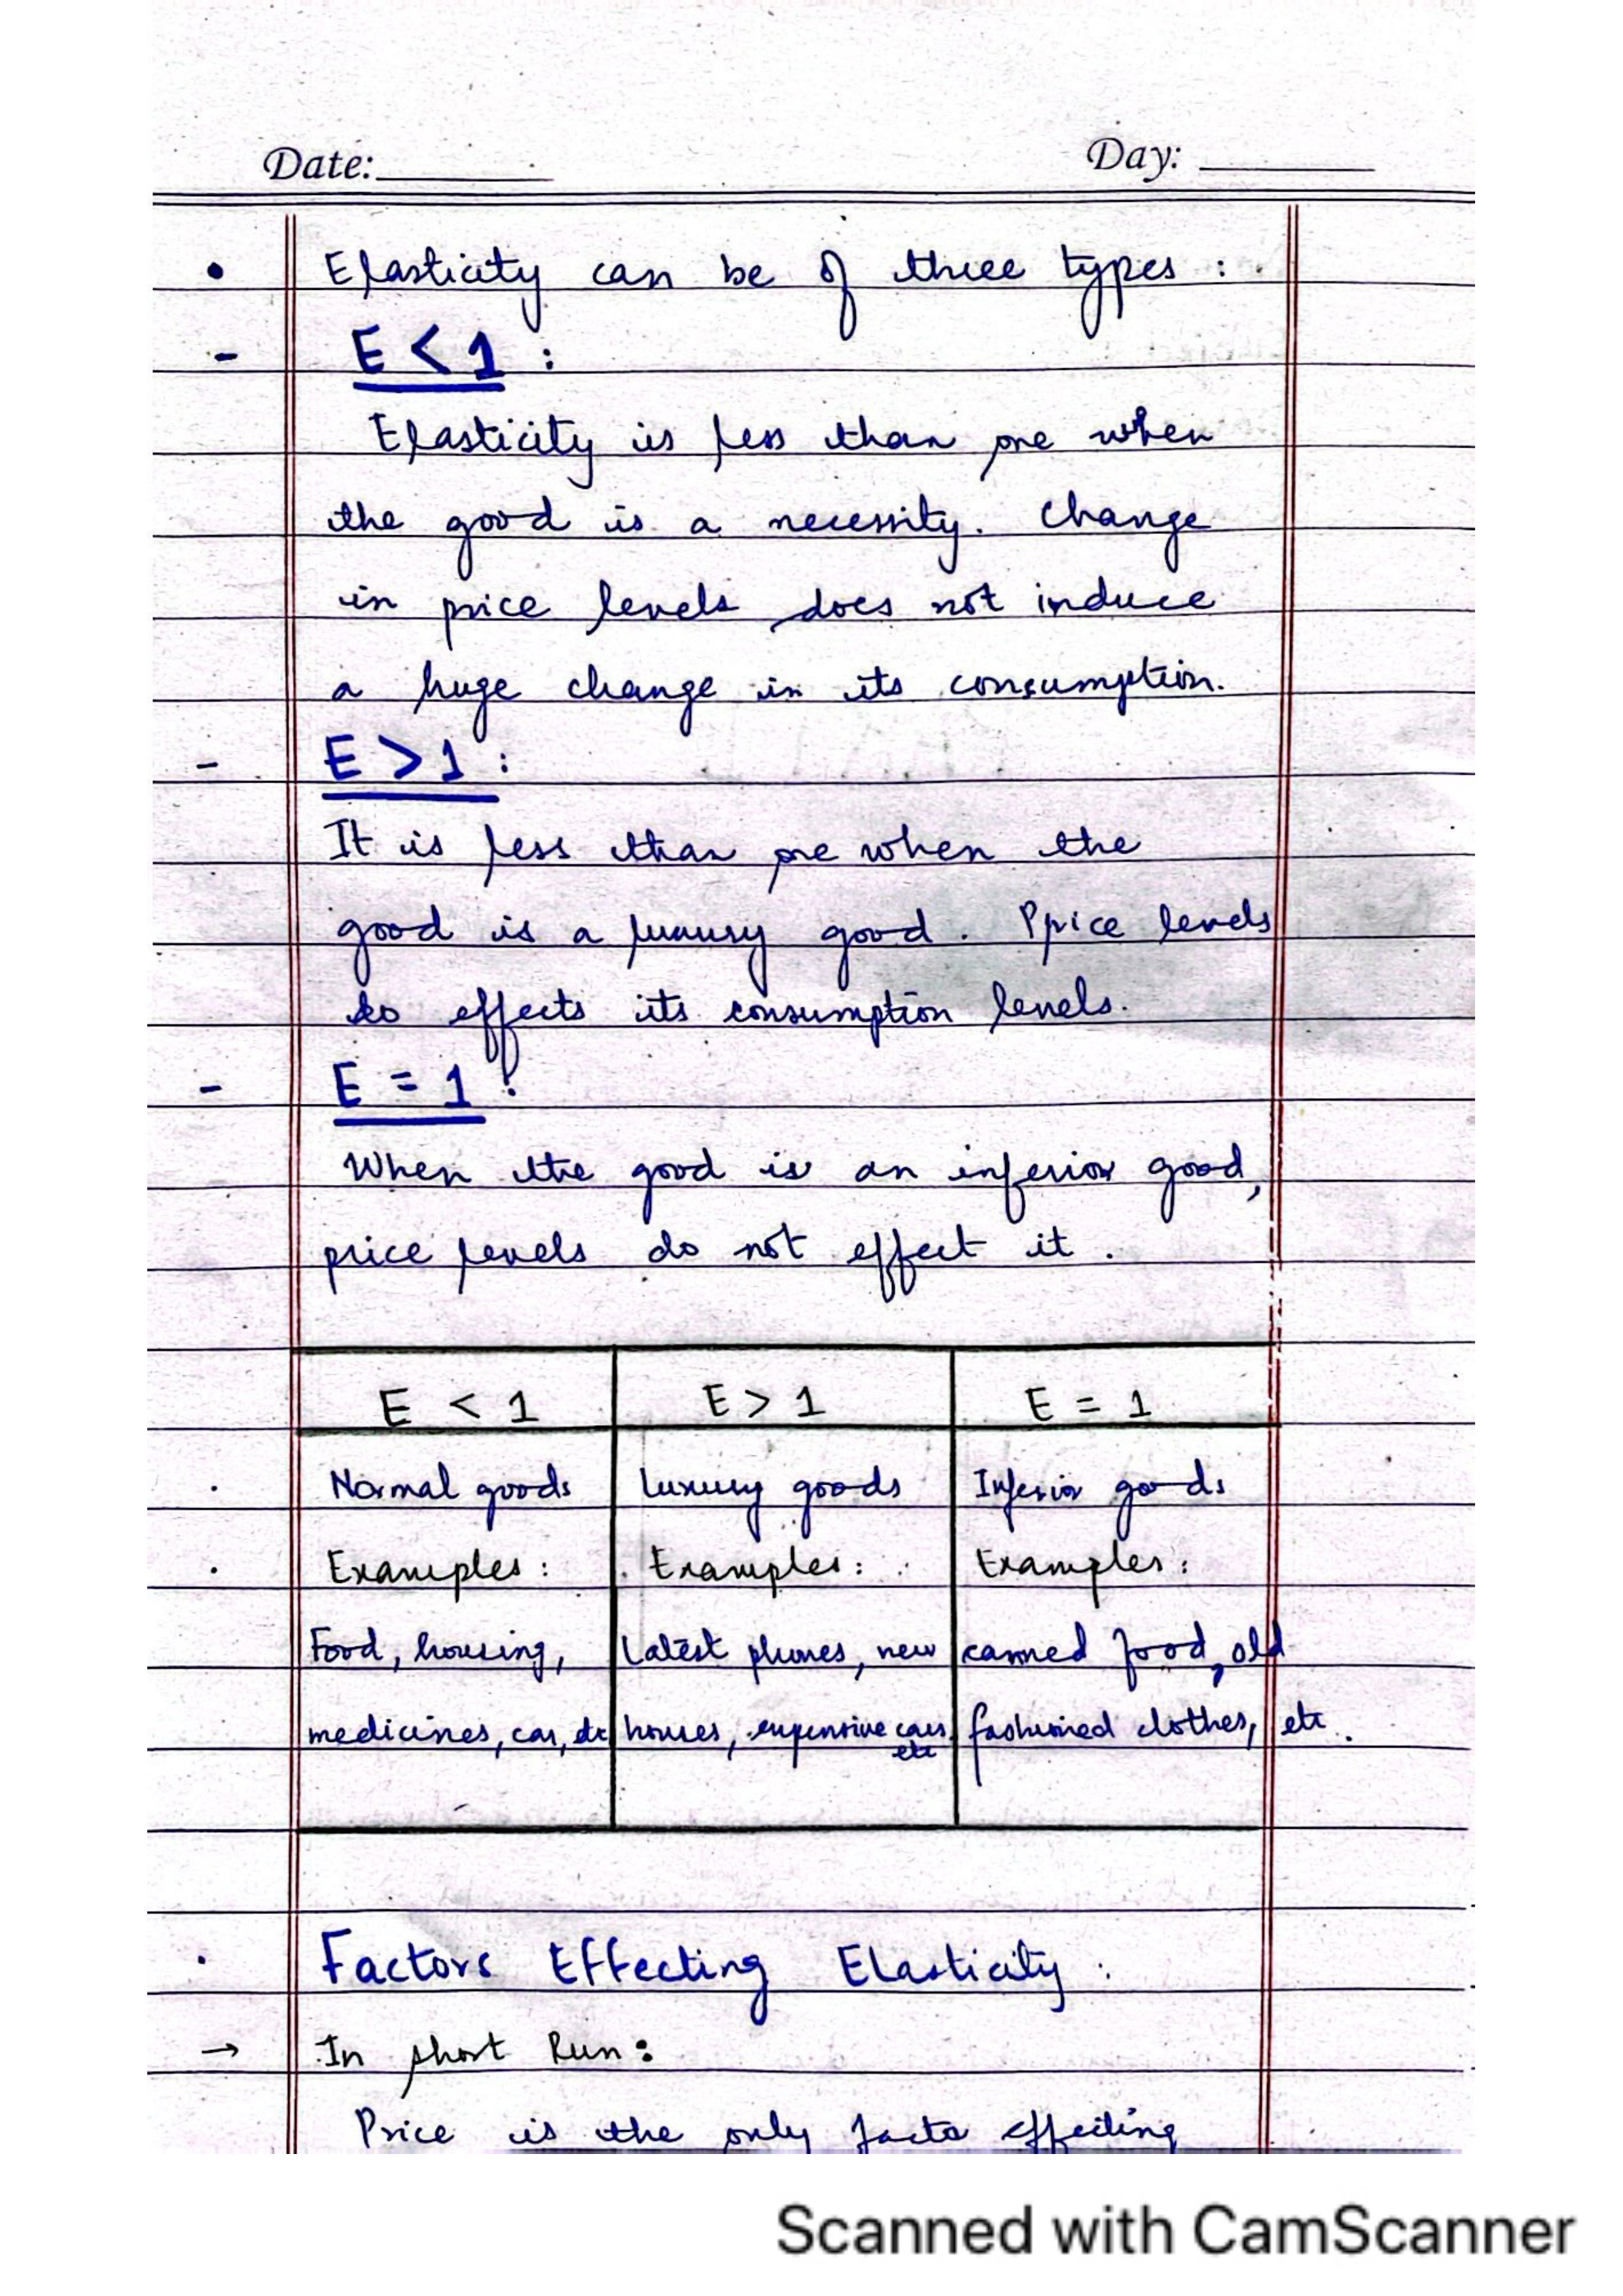 Date:
Day:
• Elasticity can be of three types :
- E < 1 :
Elasticity is less than one when
the good is a necessity. Change
in price levels does not induce
a huge change in its consumption.
- E > 1 :
It is less than one when the
good is a luxury good. Pprice levels
do effects its consumption levels.
- E = 1 :
When the good is an inferior good,
price levels do not effect it.
E < 1 E > 1 E = 1
Normal goods Luxury goods Inferior goods
Examples : Examples : Examples :
Food, housing, Latest phones, new canned food, old
medicines, car, etc houses, expensive cars, fashioned clothes, etc.
etc
Factors Effecting Elasticity :
→ In short Run :
Price is the only facto effecting
Scanned with CamScanner